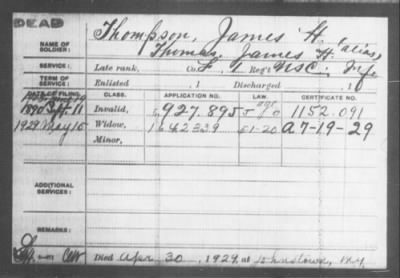 DEAD
Thompson, James H.
NAME OF SOLDIER: Thomas, James H. (alias)
SERVICE: Late rank, Co. F, 1 Reg't U.S.C. Inf
TERM OF SERVICE: Enlisted , 1 Discharged , 1
DATE OF FILING. CLASS. APPLICATION NO. LAW. CERTIFICATE NO.
1890 Invalid, 927.895 1152.091
1929 May 15 Widow, 1642339 5-1-20 A7-19-29
Minor,
ADDITIONAL SERVICES:
REMARKS:
Died Apr. 30, 1929 at Johnstown, N.Y.